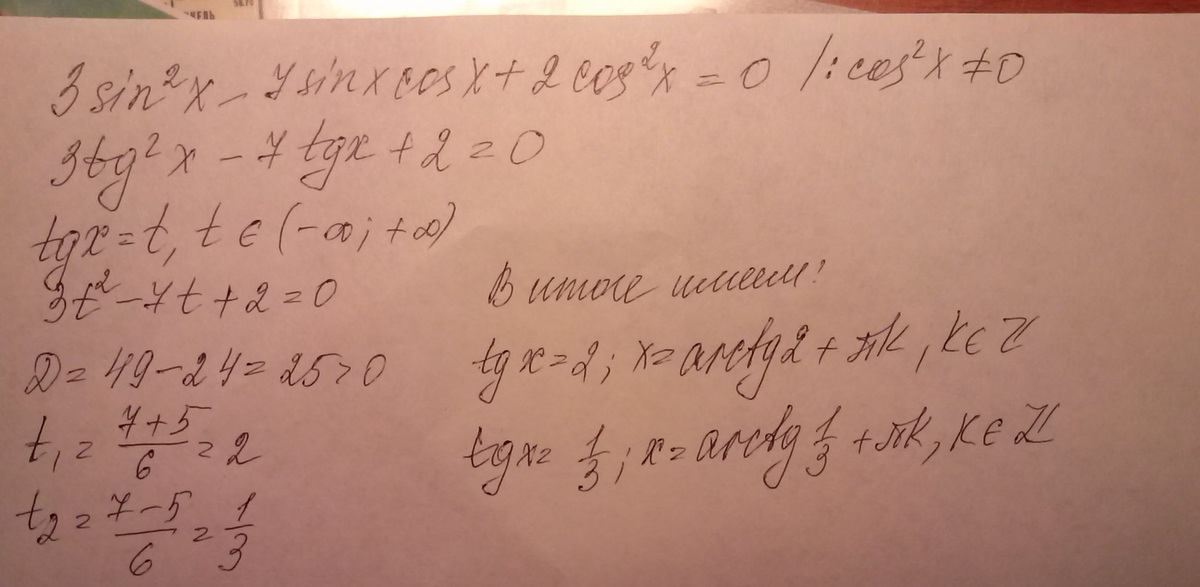 3sin²x - 7sinxcosx + 2cos²x = 0 /:cos²x ≠ 0
3tg²x - 7tgx + 2 = 0
tgx = t, t ∈ (-∞; +∞)
3t² - 7t + 2 = 0
D = 49 - 24 = 25 > 0
t₁ = (7+5)/6 = 2
t₂ = (7-5)/6 = 1/3
В итоге имеем:
tgx = 2; x = arctg2 + πk, k ∈ Z
tgx = 1/3; x = arctg 1/3 + πk, k ∈ Z